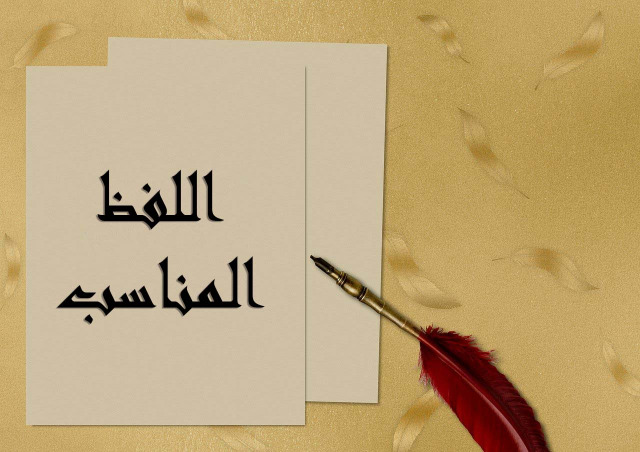 اللفظ
المناسب